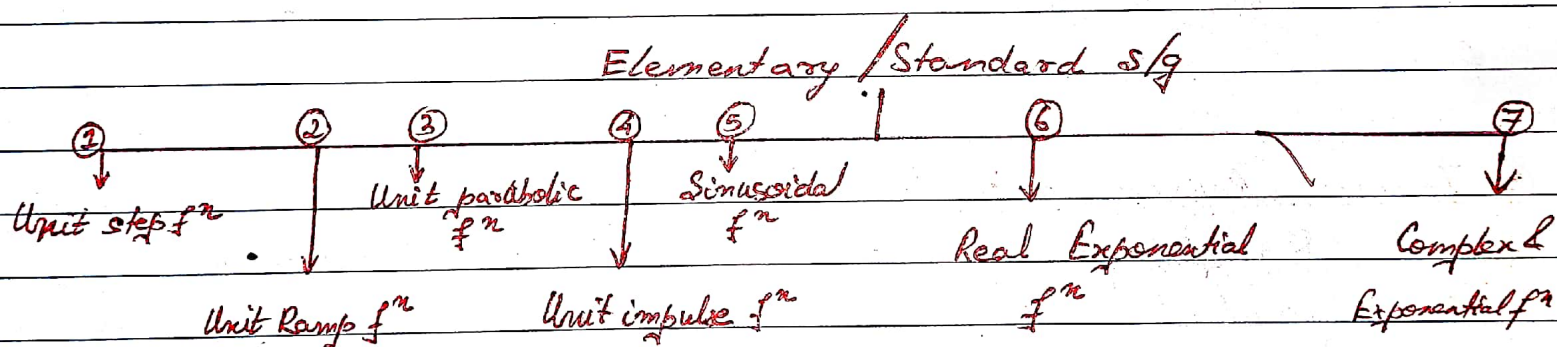 Elementary / Standard s/g
① ② ③ ④ ⑤ ⑥ ⑦
Unit step fⁿ
Unit Ramp fⁿ
Unit parabolic
fⁿ
Unit impulse fⁿ
Sinusoidal
fⁿ
Real Exponential
fⁿ
Complex &
Exponential fⁿ